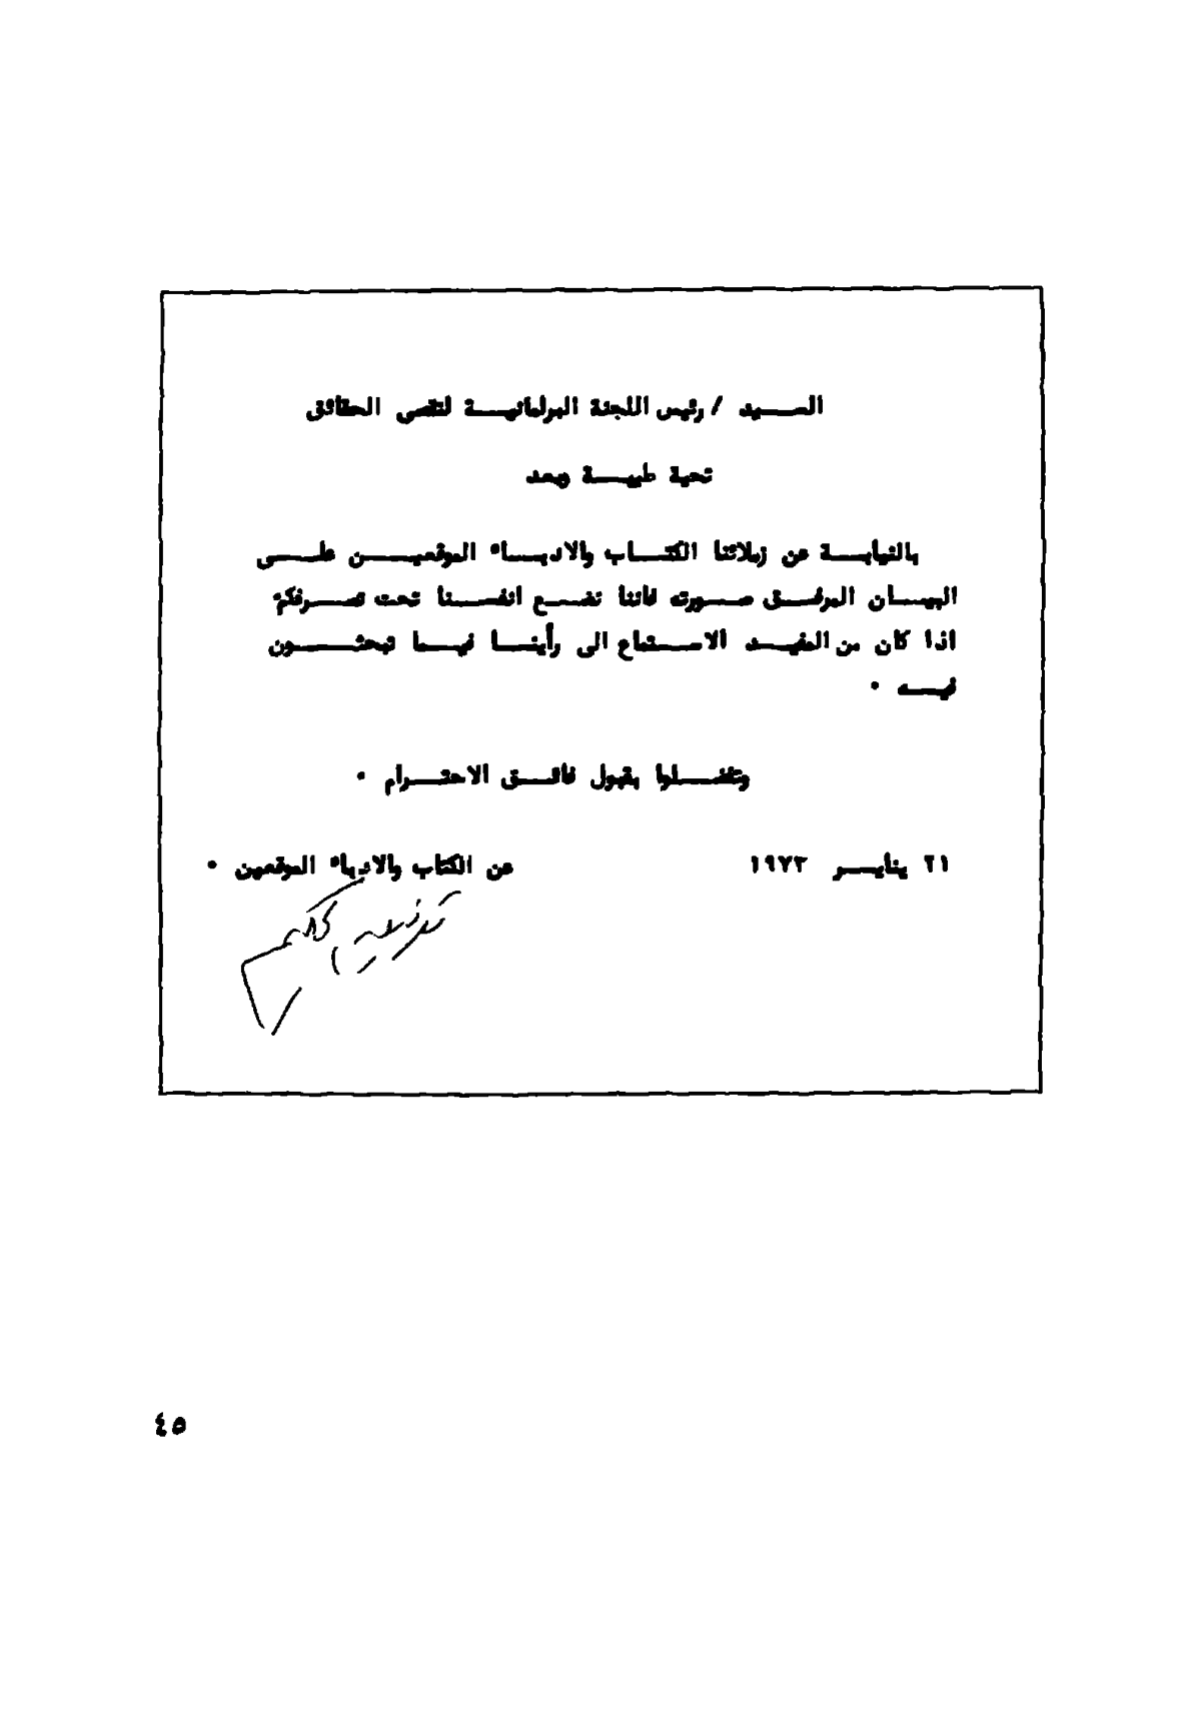 السيد / رئيس اللجنة البرلمانية لتقصى الحقائق
تحية طيبة وبعد
بالنيابة عن زملائنا الكتاب والادباء الموقعين على
البيان المرفق صورته فاننا نضع انفسنا تحت تصرفكم
اذا كان من المفيد الاستماع الى رأينا فيما تبحثون
فيه .
وتفضلوا بقبول فائق الاحترام .
٢١ يناير ١٩٧٣
عن الكتاب والادباء الموقعين .
توفيق الحكيم
٤٥